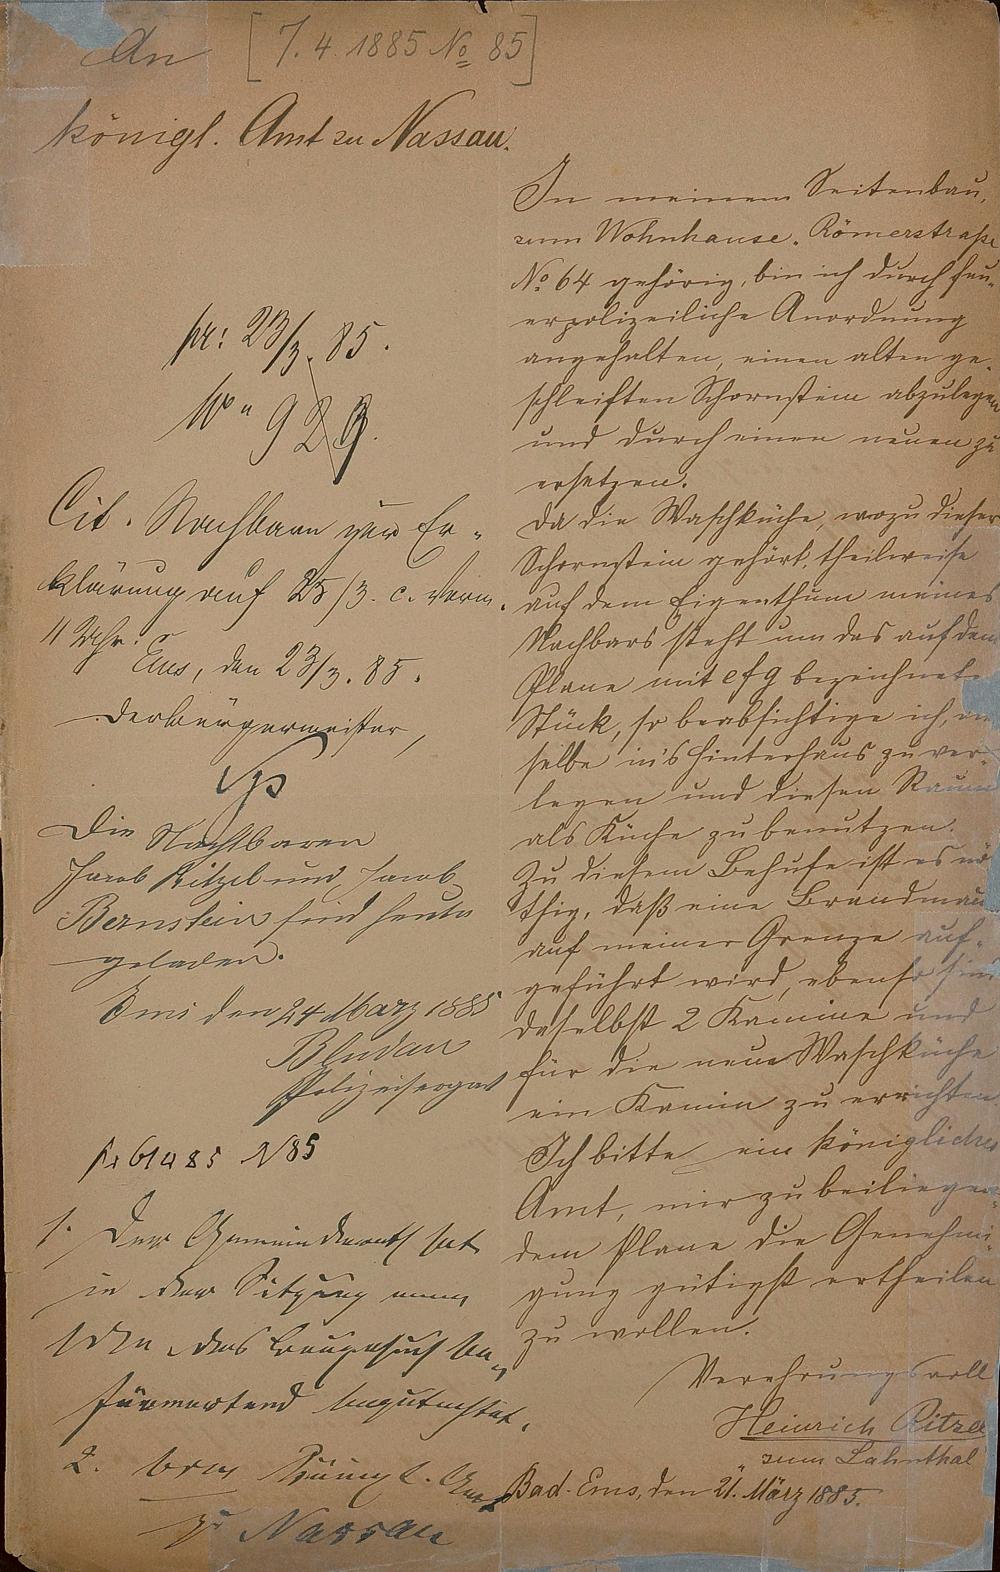 An [7.4.1885 No 85]
königl. Amt zu Nassau.
pr: 23/3. 85.
No 923.
Cit. Nachbarn zur Er-
klärung auf 25/3. c. Vorm.
11 Uhr.
Ems, den 23/3. 85.
Der Bürgermeister,
Die Nachbaren
Jacob Ritzel und Jacob
Bernstein sind heute
geladen.
Ems den 24 März 1885
Polizeisergeant
N 85
1. Der Gemeinderath hat
in der Sitzung vom
das Baugesuch be-
fürwortend begutachtet.
2. Königl. Amt
zu Nassau
In meinem Seitenbau,
zum Wohnhause, Römerstraße
No 64 gehörig, bin ich durch feu-
erpolizeiliche Anordnung
angehalten, einen alten ge-
schleiften Schornstein abzulegen
und durch einen neuen zu
ersetzen.
Da die Waschküche, wozu dieser
Schornstein gehört, theilweise
auf dem Eigenthum meines
Nachbars steht um das auf dem
Plane mit efg bezeichnete
Stück, so beabsichtige ich,
selbe in's Hinterhaus zu ver-
legen und diesen Raum
als Küche zu benutzen.
Zu diesem Behufe ist es nö-
thig, daß eine Brandmau
auf meiner Grenze auf-
geführt wird, ebenso sind
daselbst 2 Kamine und
für die neue Waschküche
ein Kamin zu errichten
Ich bitte ein königliches
Amt, mir zu beiliegen-
dem Plane die Genehmi-
gung gütigst ertheilen
zu wollen.
Verehrungsvoll
Heinrich Ritzel
"zum Lahnthal
Bad-Ems, den 21. März 1885.